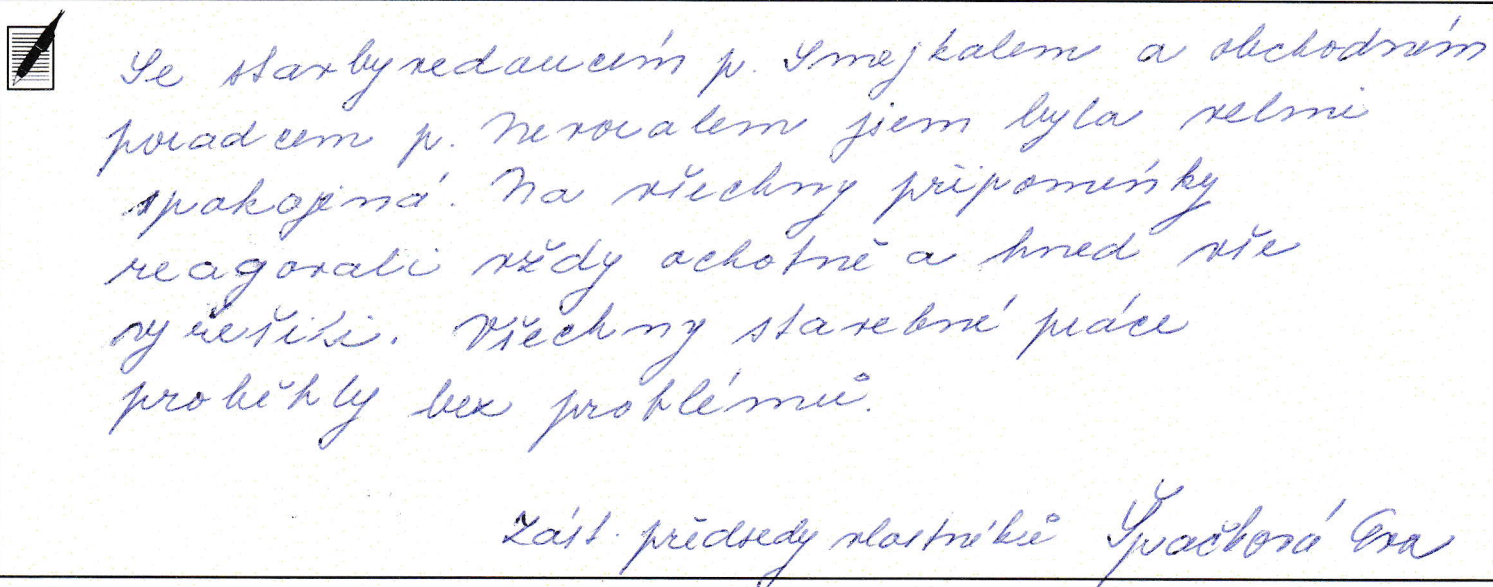 Se stavbyvedoucím p. Smejkalem a obchodním
poradcem p. Nevoralem jsem byla velmi
spokojená. Na všechny připomínky
reagovali vždy ochotně a hned vše
vyřešili. Všechny stavební práce
proběhly bez problémů.
Zást. předsedy vlastníků Špačková Eva